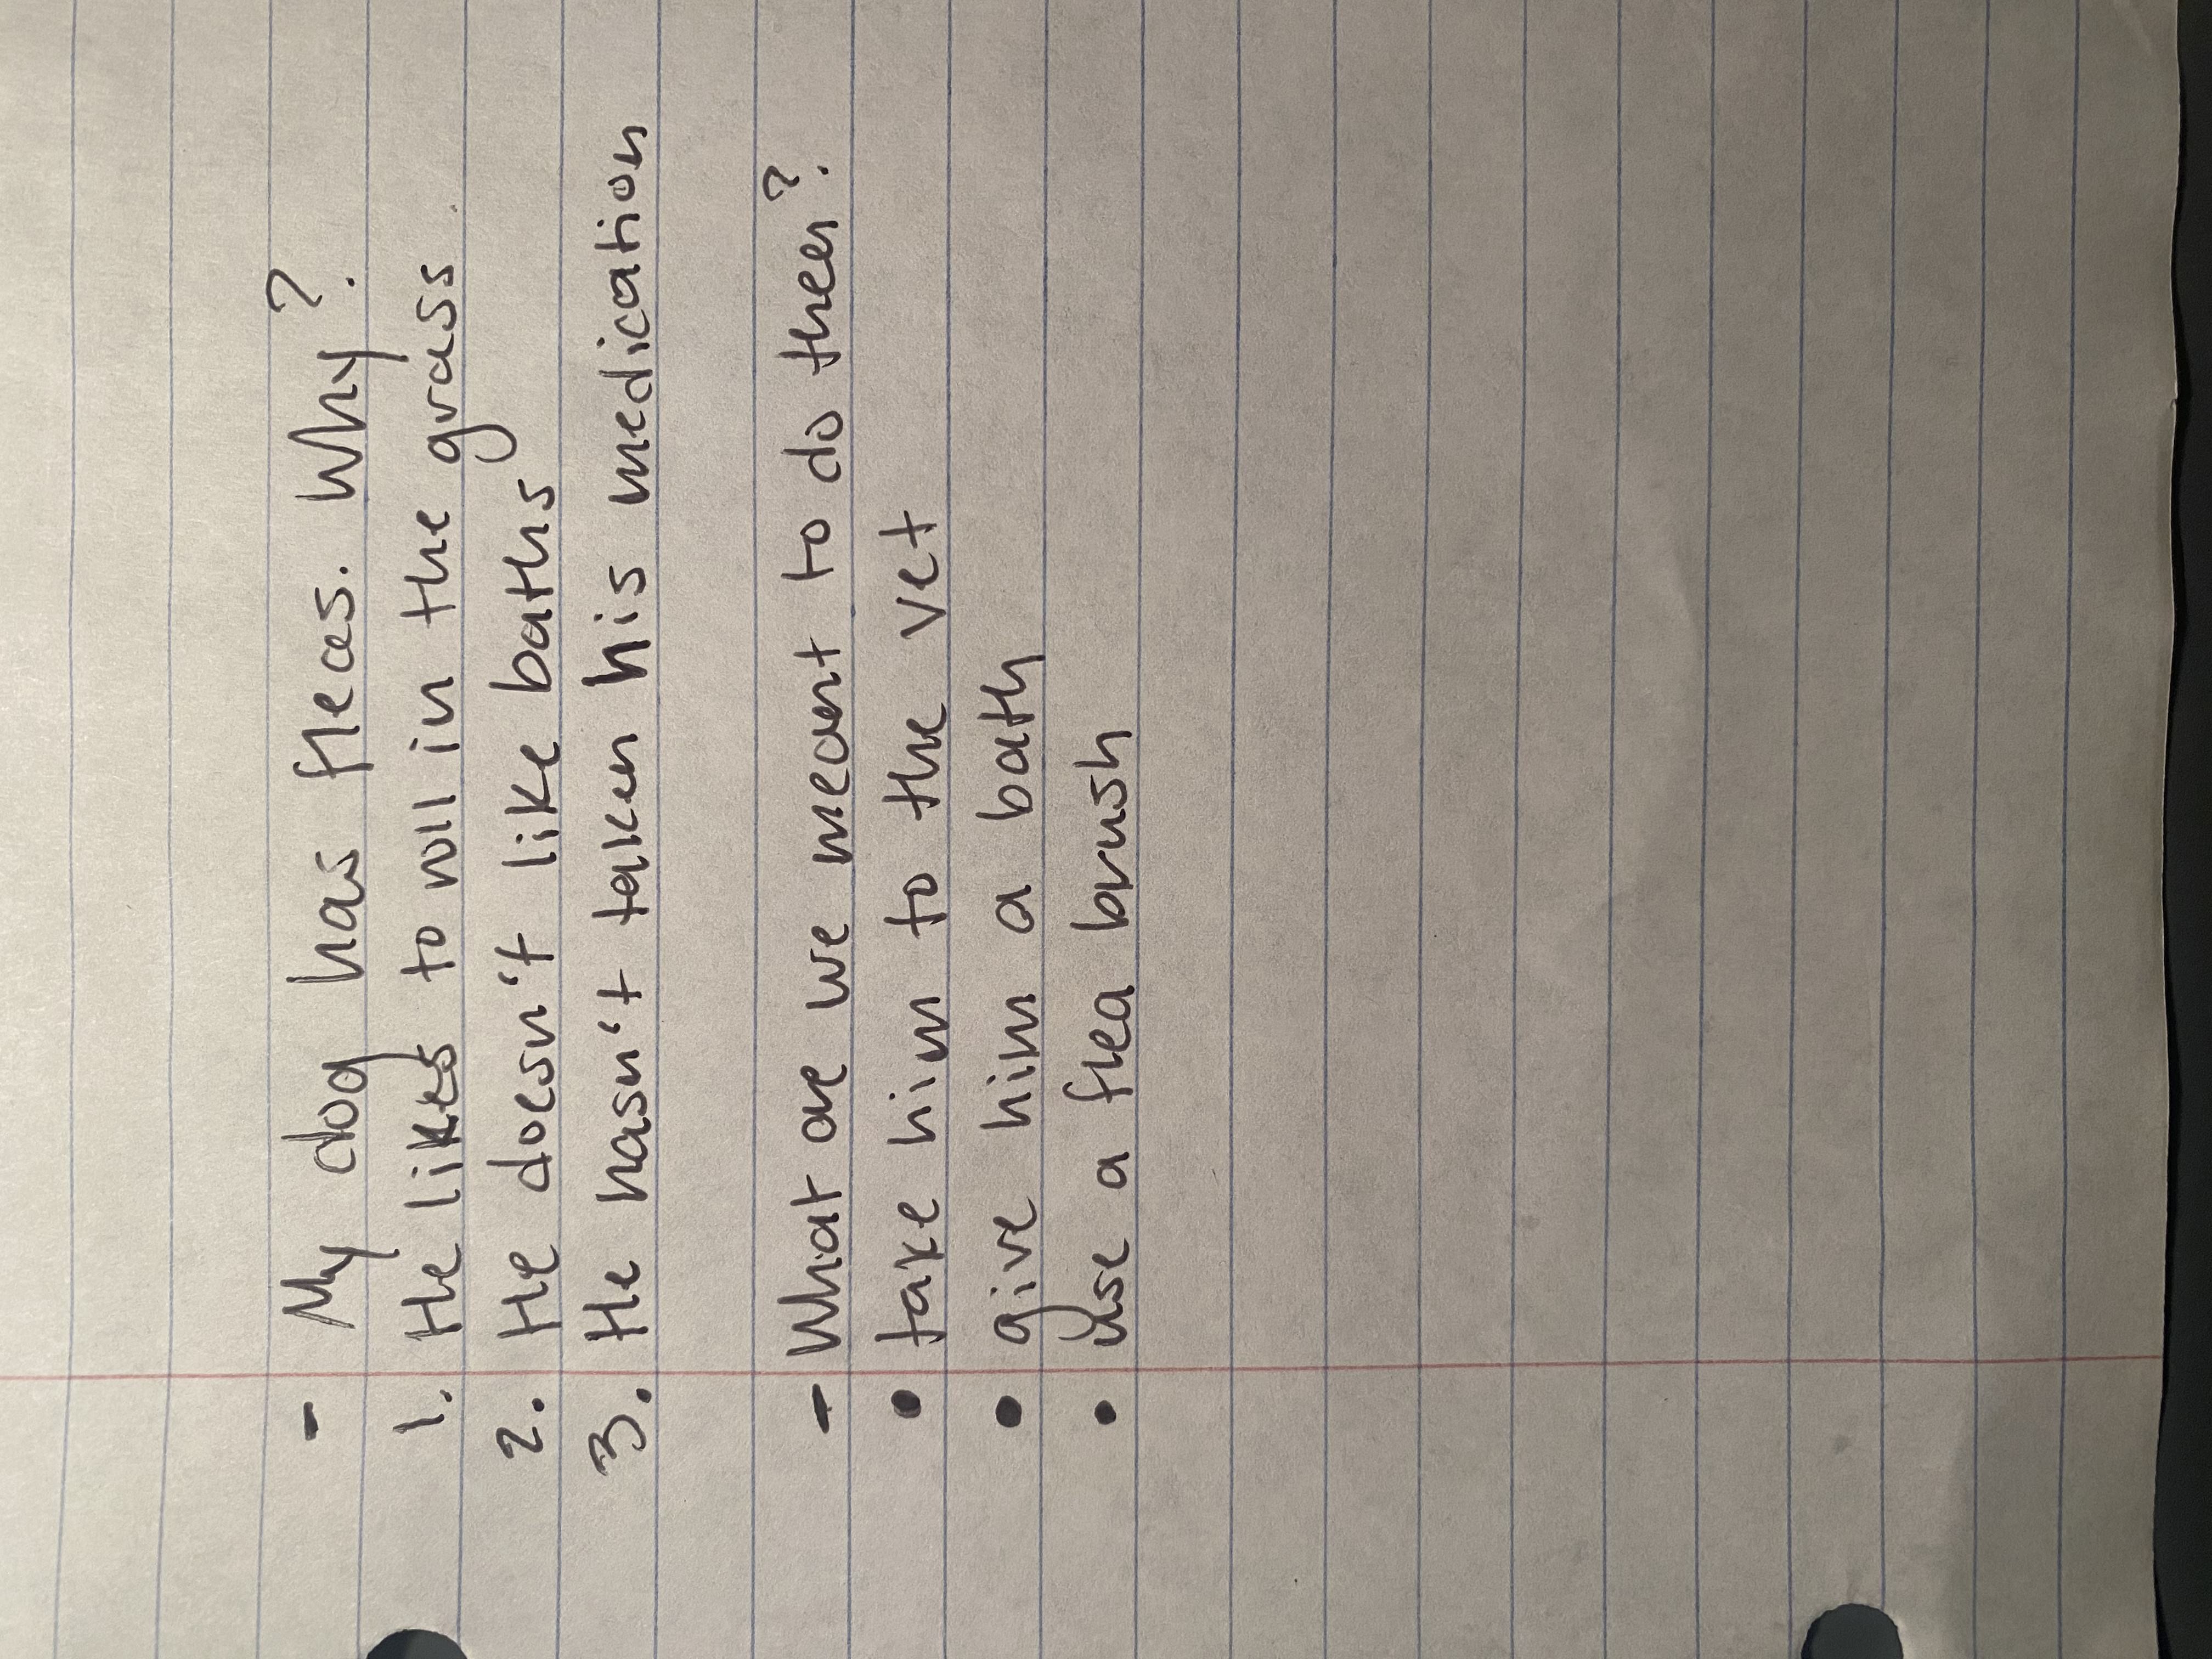 - My dog has fleas. Why?
1. He likes to roll in the grass.
2. He doesn't like baths
3. He hasn't taken his medication
- What are we meant to do then?
• take him to the vet
• give him a bath
• use a flea brush